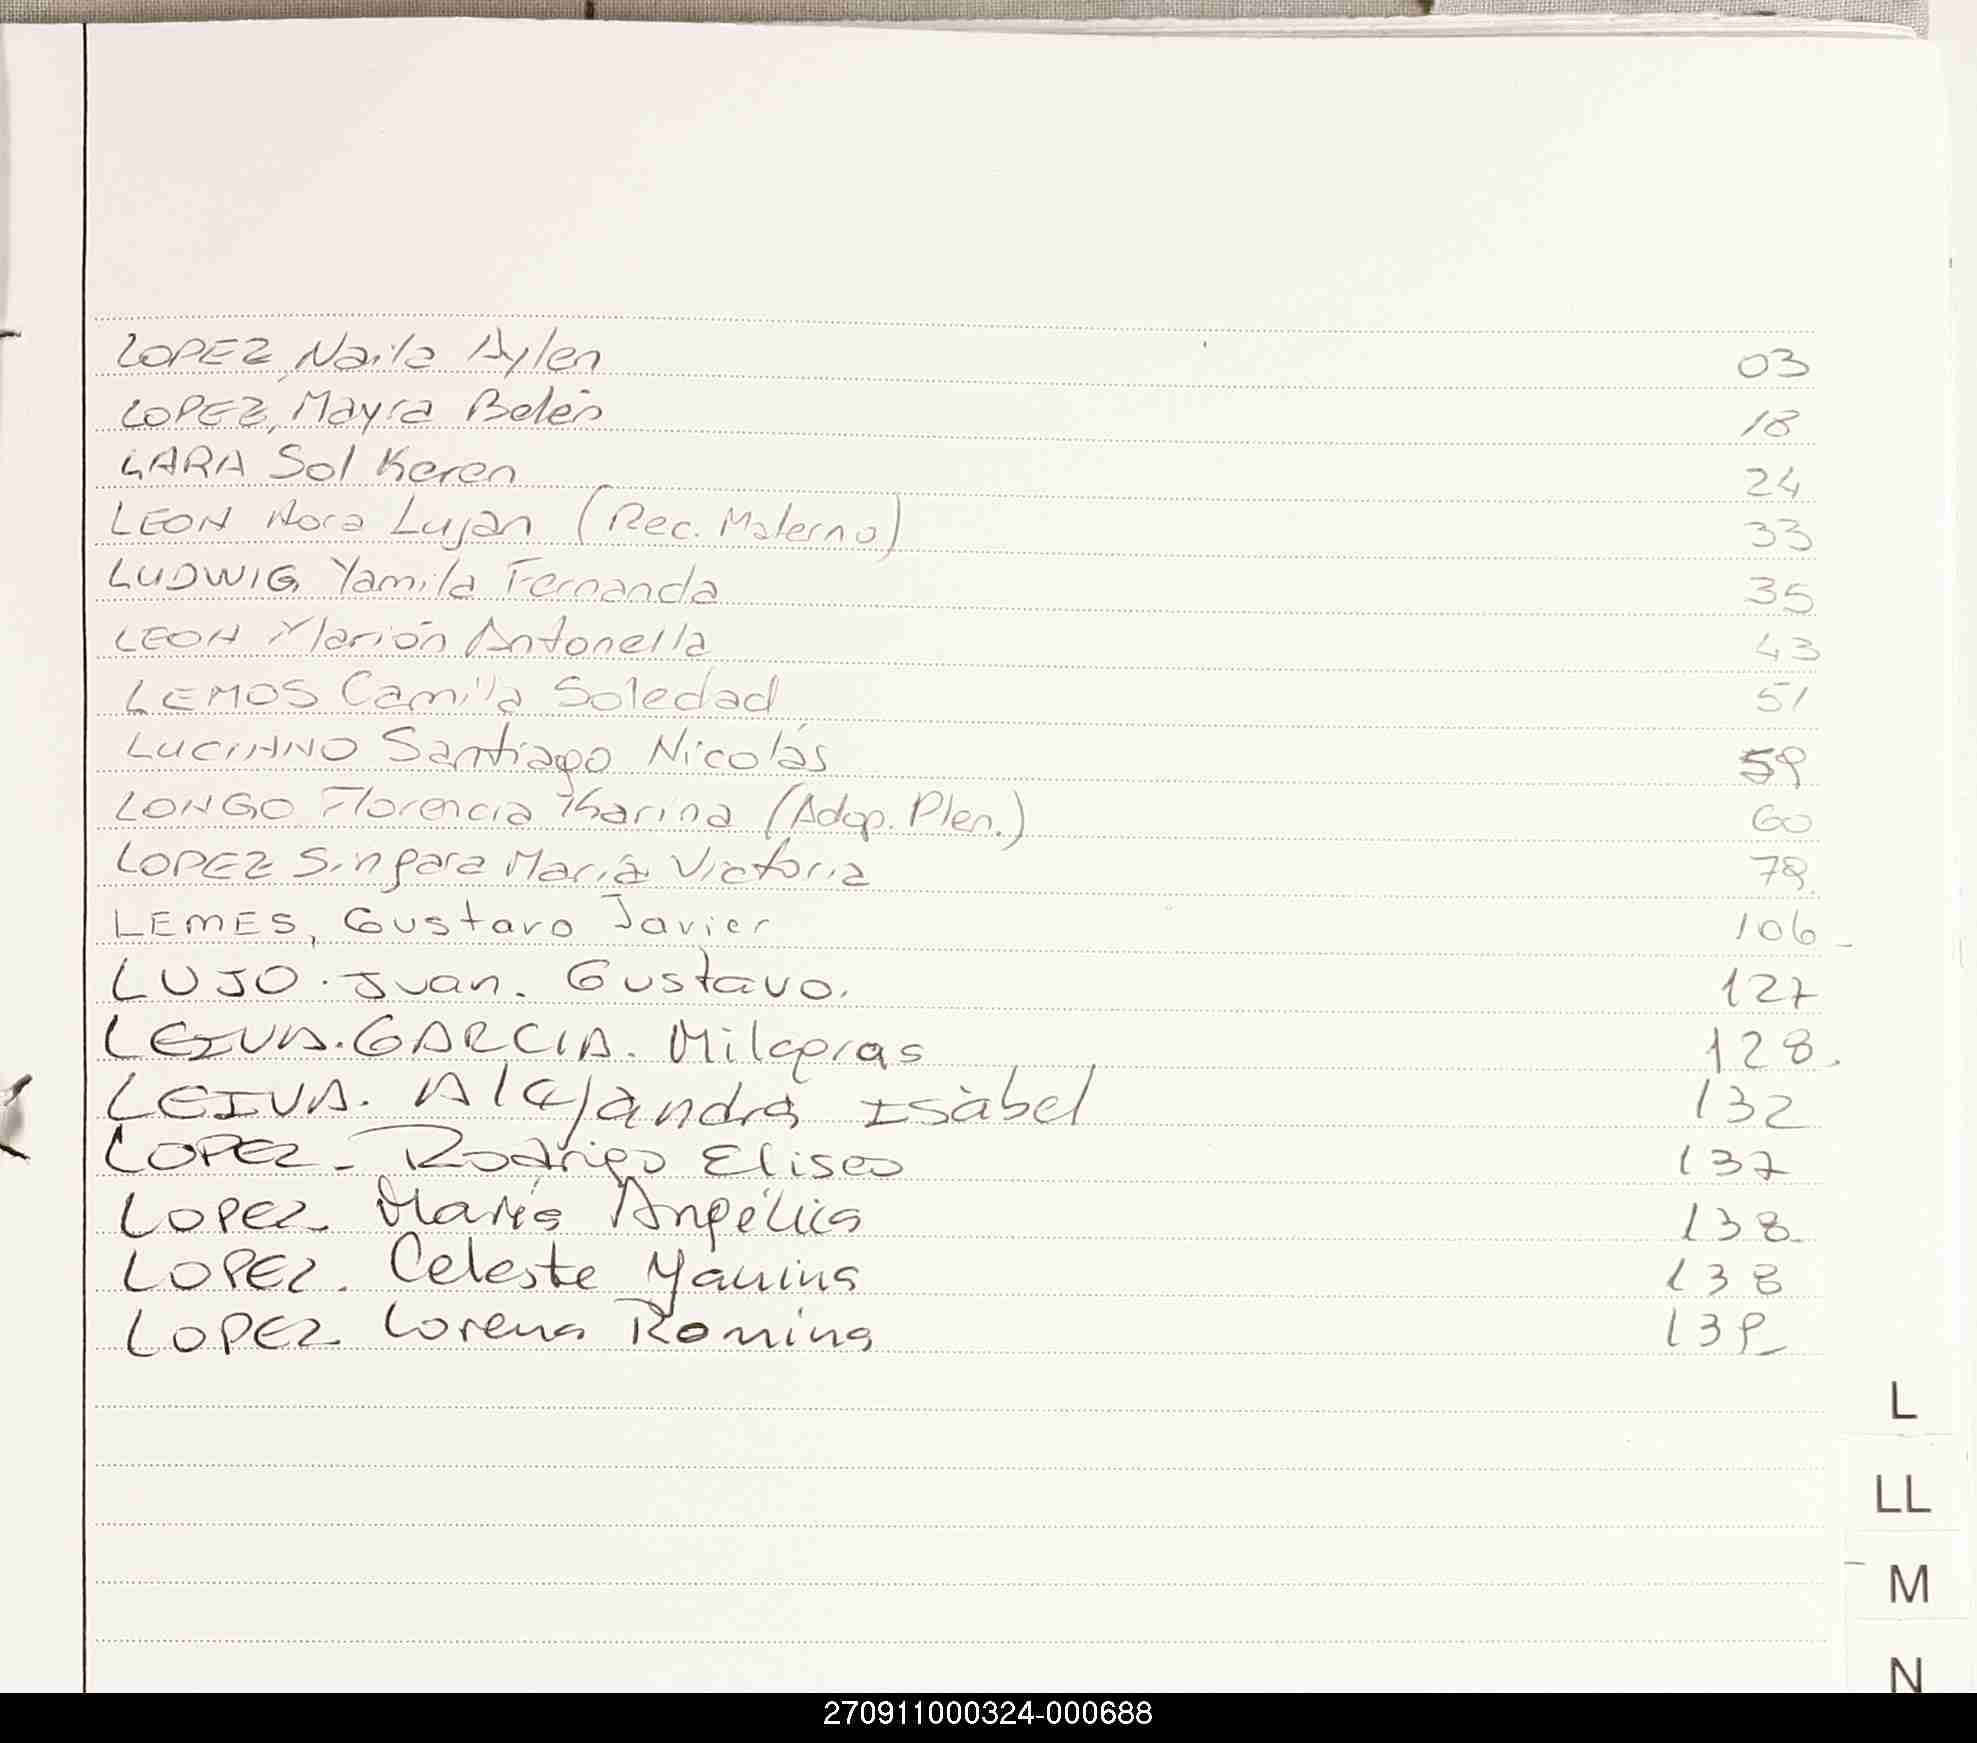 LOPEZ, Naila Aylen 03
LOPEZ, Mayra Belén 18
LARA Sol Keren 24
LEON Nora Lujan (Rec. Materno) 33
LUDWIG Yamila Fernanda 35
LEON Marión Antonella 43
LEMOS Camila Soledad 51
LUCIANO Santiago Nicolás 59
LONGO Florencia Karina (Adop. Plen.) 60
LOPEZ Singara María Victoria 79
LEMES, Gustavo Javier 106
LUJO. Juan. Gustavo. 127
LEIVA. GARCIA. Milagros 128.
LEIVA. Alejandra Isabel 132
LOPEZ. Rodrigo Eliseo 137
LOPEZ. María Angélica 138
LOPEZ. Celeste Yanina 138
LOPEZ. Lorena Romina 139
L
LL
M
N
270911000324-000688